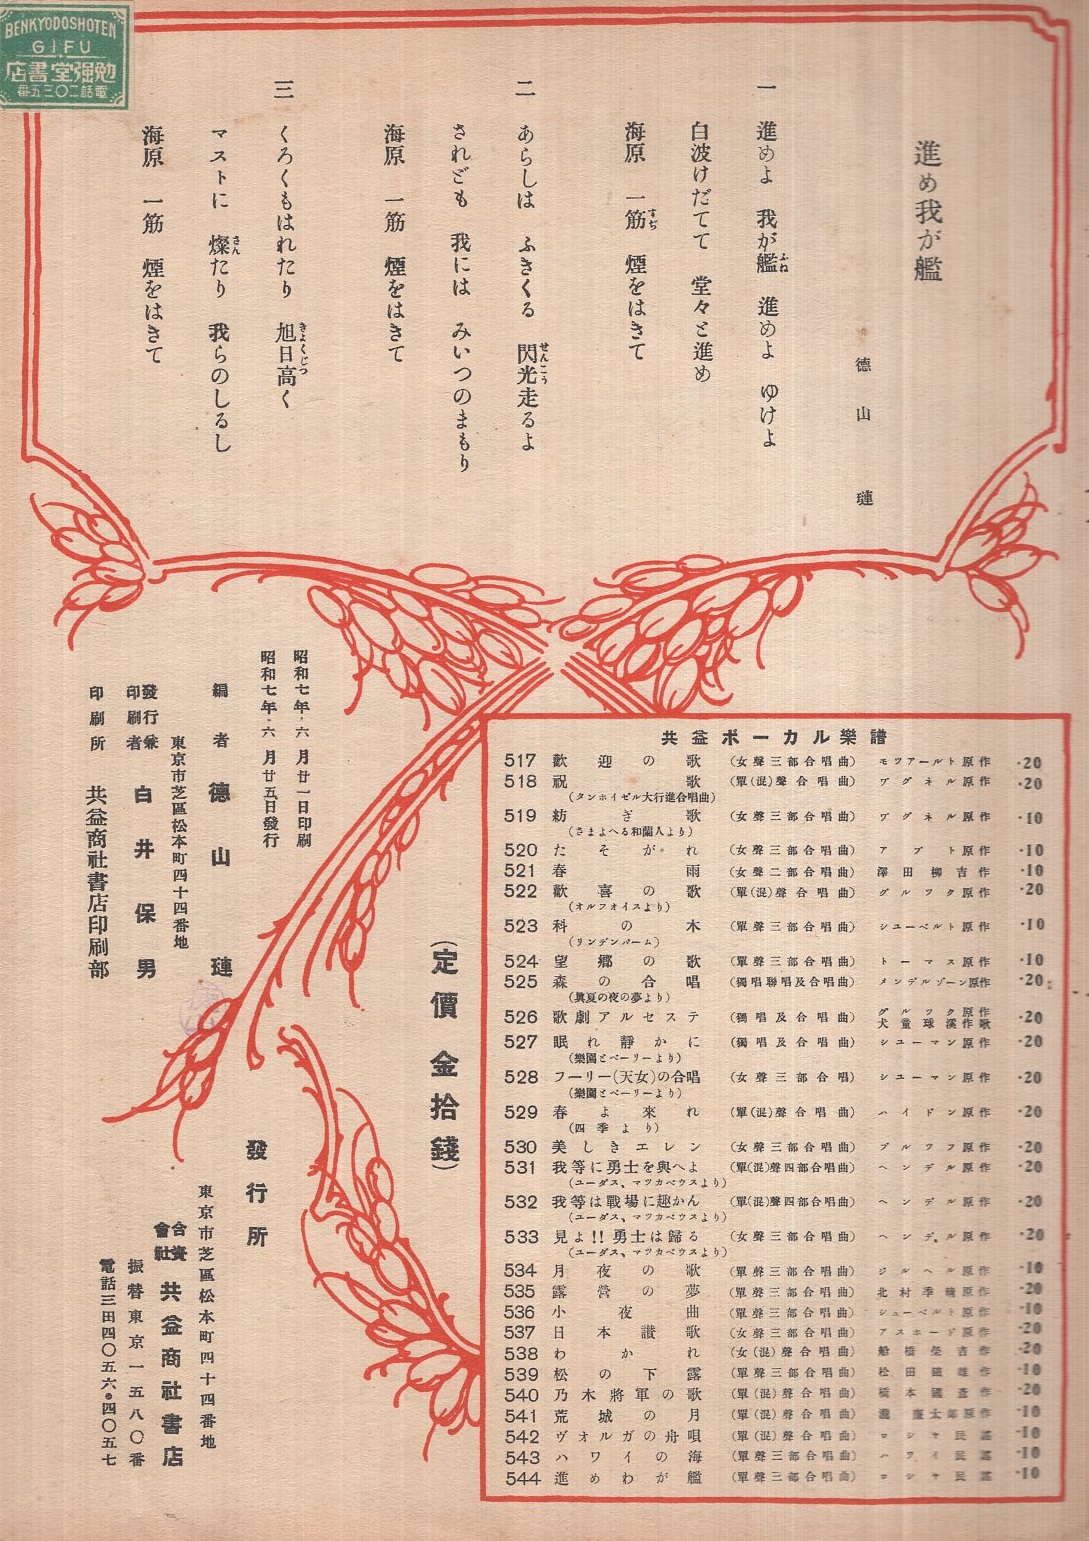 BENKYODOSHOTEN
GIFU
勉強堂書店
電話二〇三五番
進め我が艦
德山璉
一 進めよ 我が艦 進めよ ゆけよ
白波けだてて 堂々と進め
海原 一筋 煙をはきて
二 あらしは ふきくる 閃光走るよ
されども 我には みいつのまもり
海原 一筋 煙をはきて
三 くろくもはれたり 旭日高く
マストに 燦たり 我らのしるし
海原 一筋 煙をはきて
昭和七年・六月廿一日印刷
昭和七年・六月廿五日發行
編者 德山璉
東京市芝區松本町四十四番地
發行兼印刷者 白井保男
印刷所 共益商社書店印刷部
(定價金拾錢)
發行所
東京市芝區松本町四十四番地
合資會社 共益商社書店
振替東京一五八〇番
電話三田四〇五六・四〇五七
共益ボーカル樂譜
517 歡迎の歌 (女聲三部合唱曲) モツアールト原作 ·20
518 祝歌 (單(混)聲合唱曲) ワグネル原作 ·20
(タンホイゼル大行進合唱曲)
519 紡ぎ歌 (女聲三部合唱曲) ワグネル原作 ·10
(さまよへる和蘭人より)
520 たそがれ (女聲三部合唱曲) アプト原作 ·10
521 春雨 (女聲二部合唱曲) 澤田柳吉作 ·10
522 歡喜の歌 (單(混)聲合唱曲) グルツク原作 ·20
(オルフォイスより)
523 科の木 (單聲三部合唱曲) シユーベルト原作 ·10
(リンデンバーム)
524 望鄕の歌 (單聲三部合唱曲) トーマス原作 ·10
525 森の合唱 (獨唱聯唱及合唱曲) メンデルゾーン原作 ·20
(眞夏の夜の夢より)
526 歌劇アルセステ (獨唱及合唱曲) グルツク原作 犬童球溪作歌 ·20
527 眠れ靜かに (獨唱及合唱曲) シユーマン原作 ·20
(樂園とペーリーより)
528 フーリー(天女)の合唱 (女聲三部合唱) シユーマン原作 ·20
(樂園とペーリーより)
529 春よ來れ (單(混)聲合唱曲) ハイドン原作 ·20
(四季より)
530 美しきエレン (女聲三部合唱曲) ブルツフ原作 ·20
531 我等に勇士を與へよ (單(混)聲四部合唱曲) ヘンデル原作 ·20
(ユーダス、マツカベウスより)
532 我等は戰場に趣かん (單(混)聲四部合唱曲) ヘンデル原作 ·20
(ユーダス、マツカベウスより)
533 見よ!!勇士は歸る (女聲三部合唱曲) ヘンデル原作 ·20
(ユーダス、マツカベウスより)
534 月夜の歌 (單聲三部合唱曲) ジルヘル原作 ·10
535 露營の夢 (單聲三部合唱曲) 北村季晴原作 ·20
536 小夜曲 (單聲三部合唱曲) シューベルト原作 ·10
537 日本讃歌 (女聲三部合唱曲) アスホード原作 ·20
538 わかれ (女(混)聲合唱曲) 船橋榮吉作 ·20
539 松の下露 (單聲三部合唱曲) 松田 雄作 ·10
540 乃木將軍の歌 (單(混)聲合唱曲) 橋本國彥作 ·20
541 荒城の月 (單(混)聲合唱曲) 瀧廉太郎原作 ·10
542 ヴォルガの舟唄 (單(混)聲合唱曲) ロシヤ民謠 ·10
543 ハワイの海 (單聲三部合唱曲) ハワイ民謠 ·10
544 進めわが艦 (單聲三部合唱曲) ロシヤ民謠 ·10